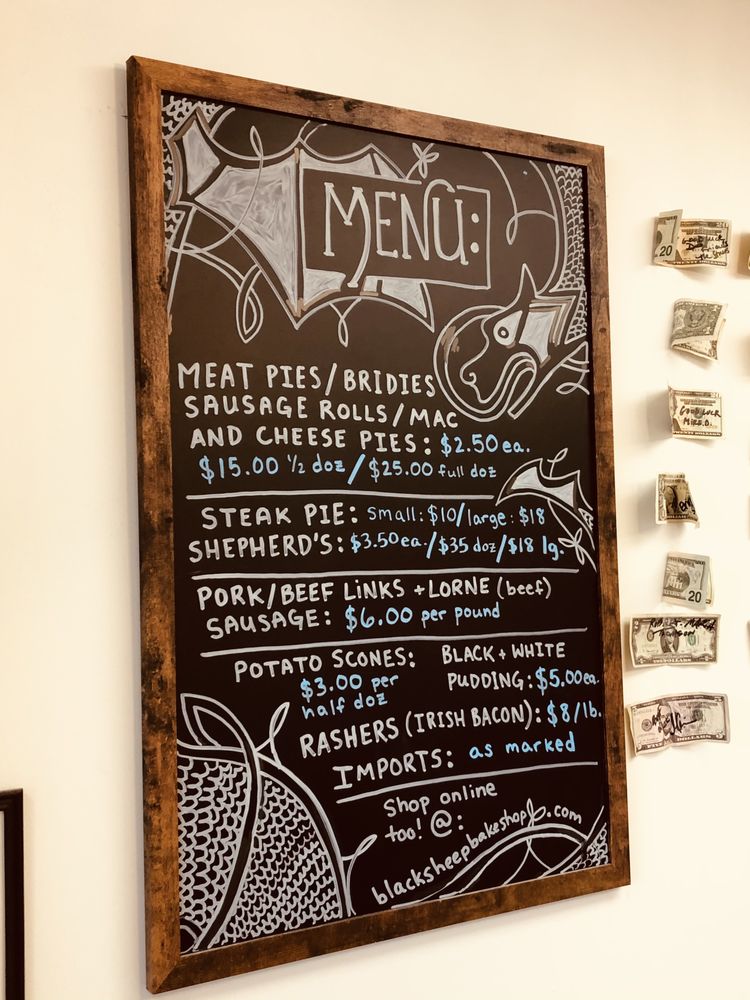 MENU:
MEAT PIES/BRIDIES
SAUSAGE ROLLS/MAC
AND CHEESE PIES: $2.50 ea.
$15.00 ½ doz/$25.00 full doz
STEAK PIE: Small: $10/large: $18
SHEPHERD'S: $3.50ea/$35 doz/$18 lg.
PORK/BEEF LINKS + LORNE (beef)
SAUSAGE: $6.00 per pound
POTATO SCONES:
$3.00 per
half doz
BLACK + WHITE
PUDDING: $5.00ea.
RASHERS (IRISH BACON): $8/lb.
IMPORTS: as marked
Shop online
too! @:
blacksheepbakeshop.com
20
GOOD LUCK
20